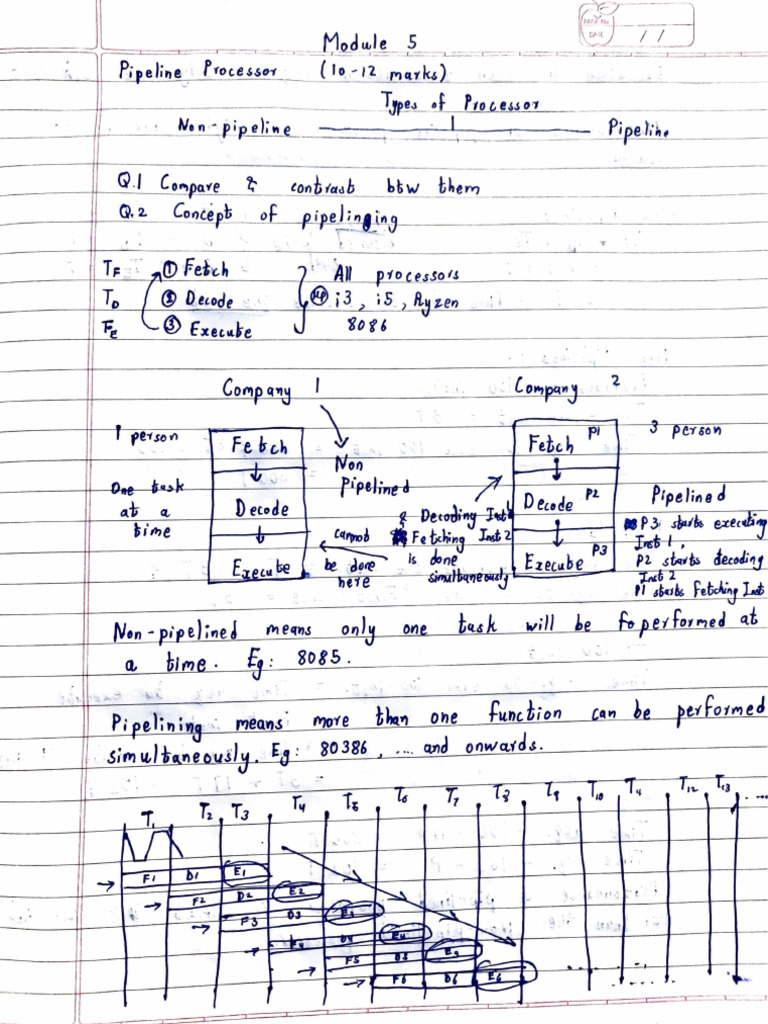 PAGE NO.
DATE
/ /
Module 5
Pipeline Processor (10-12 marks)
Types of Processor
Non-pipeline Pipeline
Q.1 Compare & contrast btw them
Q.2 Concept of pipelining
TF ① Fetch All processors
TD ② Decode μp i3, i5, Ryzen
FE ③ Execute 8086
Company 1 Company 2
1 person Fetch Fetch P1 3 person
Non Pipelined
One task at a time Decode Decode P2 Pipelined
Execute Execute P3
cannot be done here
& Decoding Inst1
Fetching Inst2
is done
simultaneously
P3 starts executing
Inst 1,
P2 starts decoding
Inst 2
P1 starts Fetching Inst
Non-pipelined means only one task will be foperformed at
a time. Eg: 8085.
Pipelining means more than one function can be performed
simultaneously. Eg: 80386, .... and onwards.
T1 T2 T3 T4 T5 T6 T7 T8 T9 T10 T11 T12 T13 ....
F1 D1 E1
F2 D2 E2
F3 D3 E3
F4 D4 E4
F5 D5 E5
F6 D6 E6